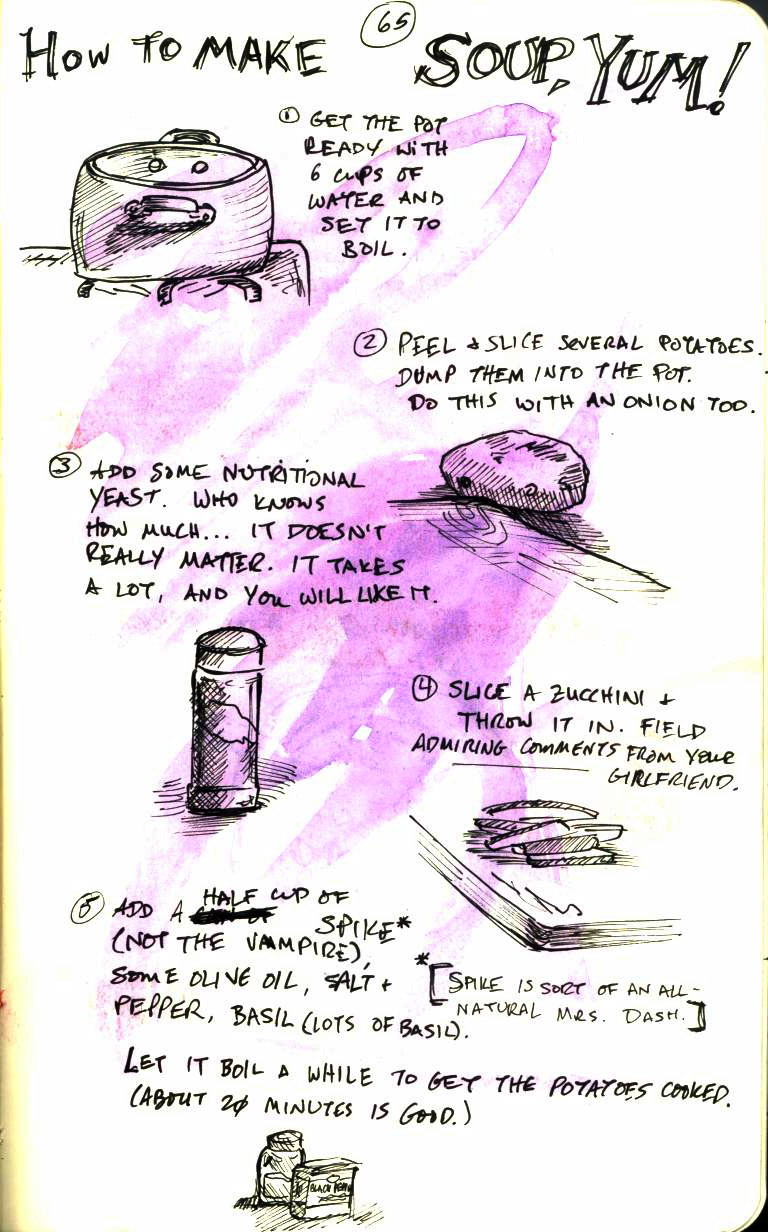 65
HOW TO MAKE SOUP, YUM!
① GET THE POT
READY WITH
6 CUPS OF
WATER AND
SET IT TO
BOIL.
② PEEL & SLICE SEVERAL POTATOES.
DUMP THEM INTO THE POT.
DO THIS WITH AN ONION TOO.
③ ADD SOME NUTRITIONAL
YEAST. WHO KNOWS
HOW MUCH... IT DOESN'T
REALLY MATTER. IT TAKES
A LOT, AND YOU WILL LIKE IT.
④ SLICE A ZUCCHINI &
THROW IT IN. FIELD
ADMIRING COMMENTS FROM YOUR
GIRLFRIEND.
⑤ ADD A HALF CUP OF
SPIKE*
(NOT THE VAMPIRE),
SOME OLIVE OIL, SALT &
PEPPER, BASIL (LOTS OF BASIL).
*[SPIKE IS SORT OF AN ALL-
NATURAL MRS. DASH.]
LET IT BOIL A WHILE TO GET THE POTATOES COOKED.
(ABOUT 20 MINUTES IS GOOD.)
BLACK